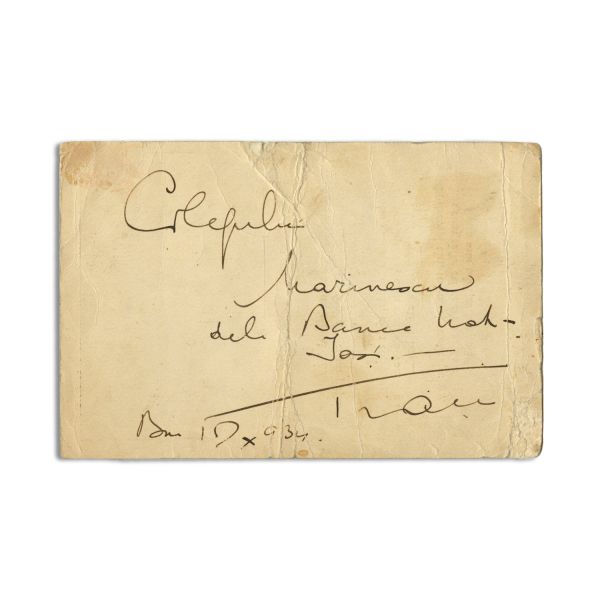 Colegului
Marinescu
dela Banca Naț-
Iași. —
Buc 15 X 934.